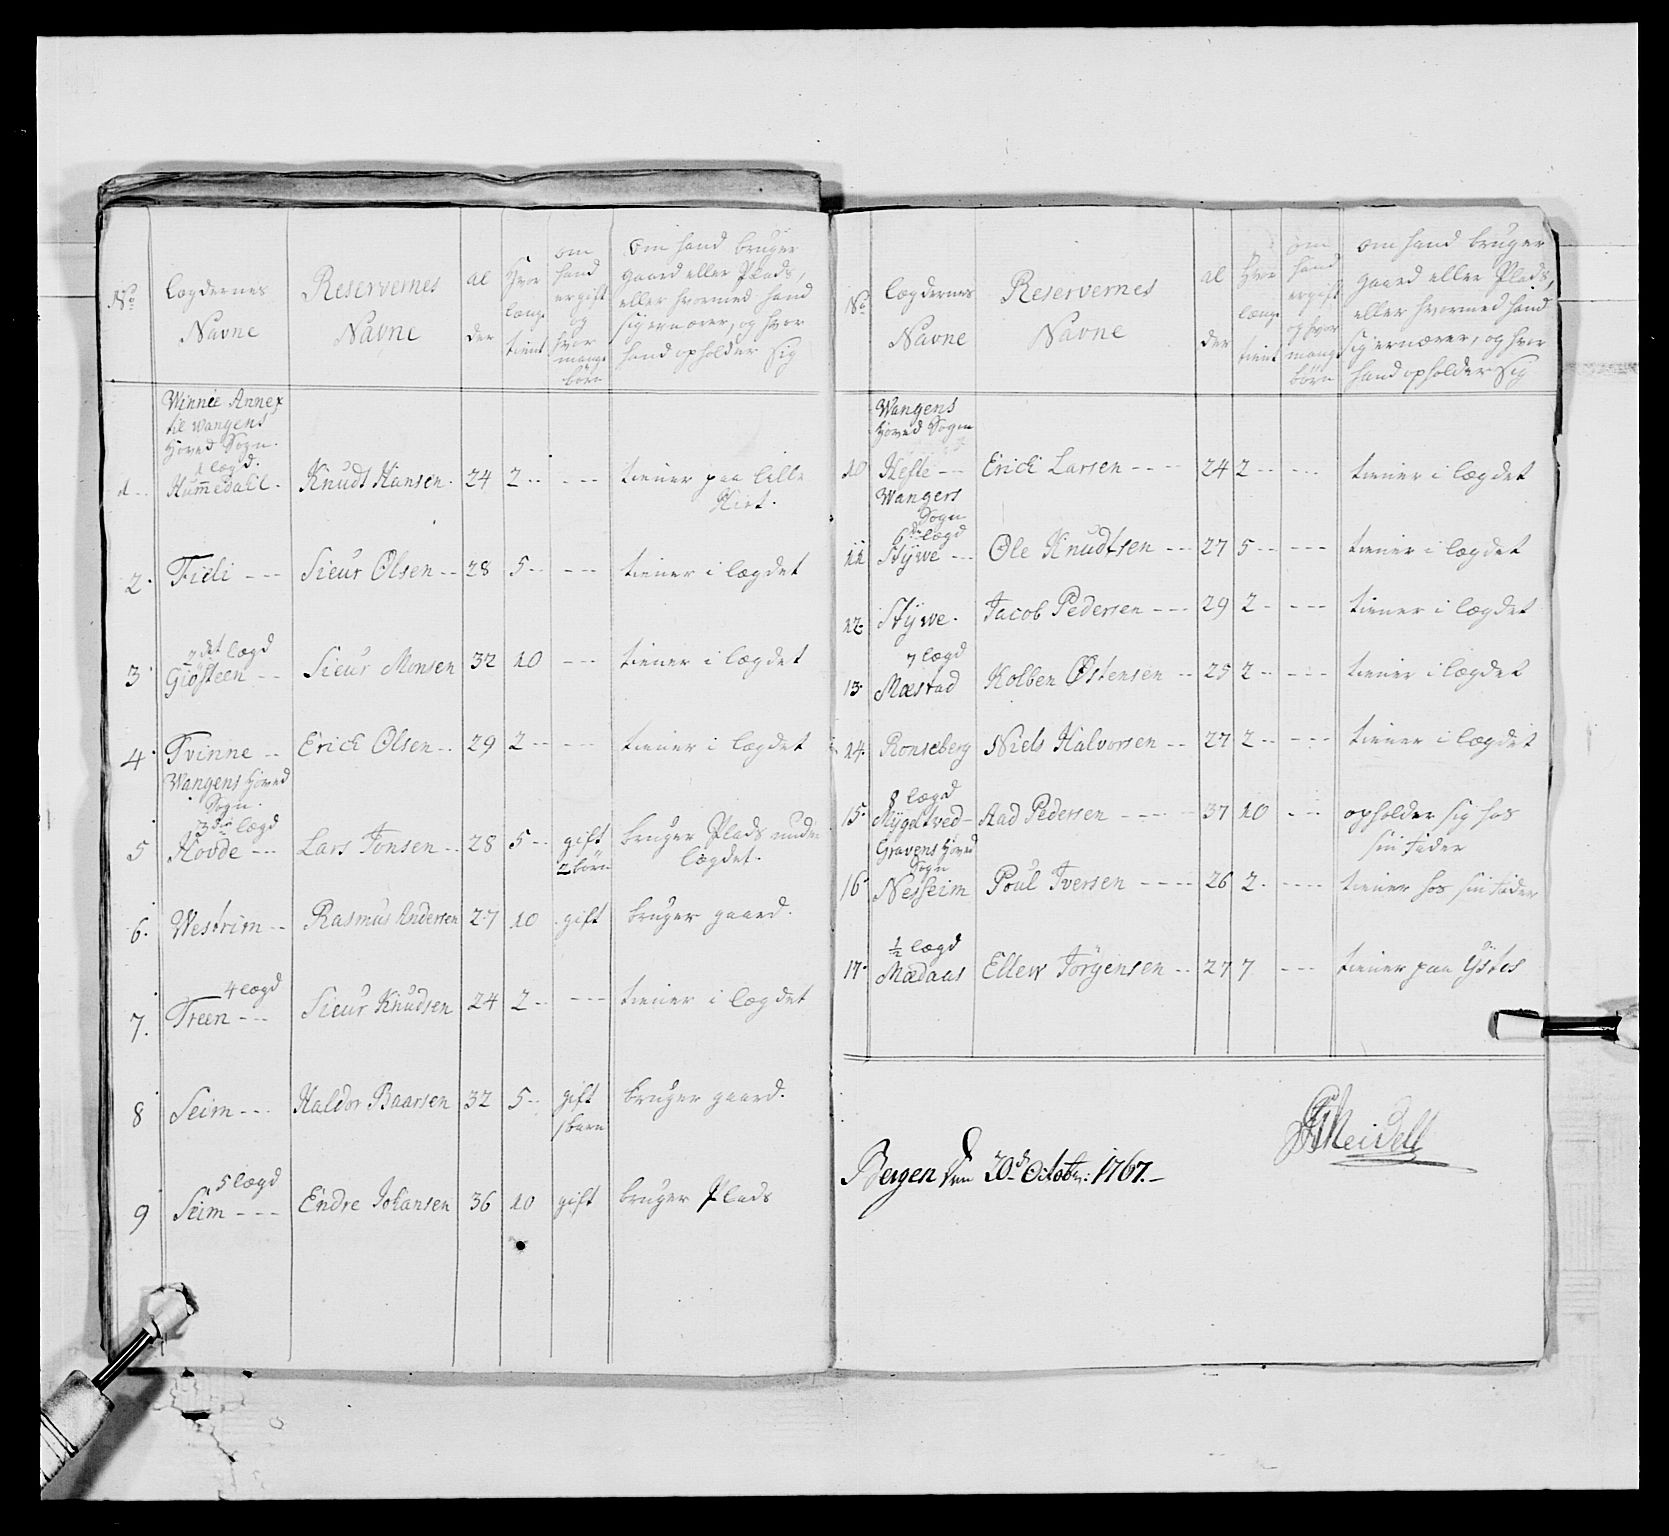 No
Lægdernes
Navne
Reservernes
Navne
al
der
Hvor
længe
tient
om
hand
er gift
og
hvor
mange
børn
om hand bruger
gaard eller Plads,
eller hvormed hand
sig ernærer, og hvor
hand opholder sig
Winnie Annex
til Wangens
Hoved Sogn.
1 lægd.
1 -- Hummedahl. Knudt Hansen. 24 2 -- --- tiener paa lille
2. Fieli --- Sieur Olsen -- 28 5 -- --- tiener i lægdet
7det lægd
3. Giøsteen -- Sieur Monsen 32 10 --- tiener i lægdet
4. Tvinne -- Erich Olsen -- 29 2 -- --- tiener i lægdet
Wangens Hoved
Sogn.
3die lægd
5 Hovde -- Lars Jonsen -- 28 5 -- gift bruger Plads under
2 børn lægdet.
6. Westrim -- Rasmus Andersen 27 10 gift bruger gaard.
4 lægd
7. Treen --- Sieur Knudsen 24 2 -- --- tiener i lægdet
8 Seim --- Haldor Baarsen 32 5 -- gift bruger gaard.
1 barn
5 lægd
9 Seim --- Endre Johansen 36 10 gift bruger Plads
No
Lægdernes
Navne
Reservernes
Navne
al
der
Hvor
længe
tient
om
hand
er gift
og hvor
mange
børn
om hand bruger
gaard eller Plads,
eller hvormed hand
sig ernærer, og hvor
hand opholder sig
Wangens
Hoved Sogn
10 Hefte -- Erich Larsen ---- 24 2 -- --- tiener i lægdet
Wangers
Sogn
6te lægd
11 Stÿwe --- Ole Knudtsen --- 27 5 -- --- tiener i lægdet
12. Stÿwe. Jacob Pedersen --- 29 2 - --- tiener i lægdet
7 lægd
13. Mæstad Kolben Østensen -- 25 2 -- --- tiener i lægdet
14. Ronseberg Niels Halvorsen -- 27 2 -- --- tiener i lægdet
8 lægd
15. Mÿgdtved - Aad Pedersen ---- 37 10 --- opholder sig hos
sin Fader
Gravens Hoved
Sogn
16. Nesheim Poul Iversen ---- 26 2 - ---- tiener hos sin Fader
1/2 lægd
17. Mædaas Ellew Jörgensen -- 27 7 --- tiener paa Ÿstes
Meidell
Bergen den 20de Octobr: 1767. -